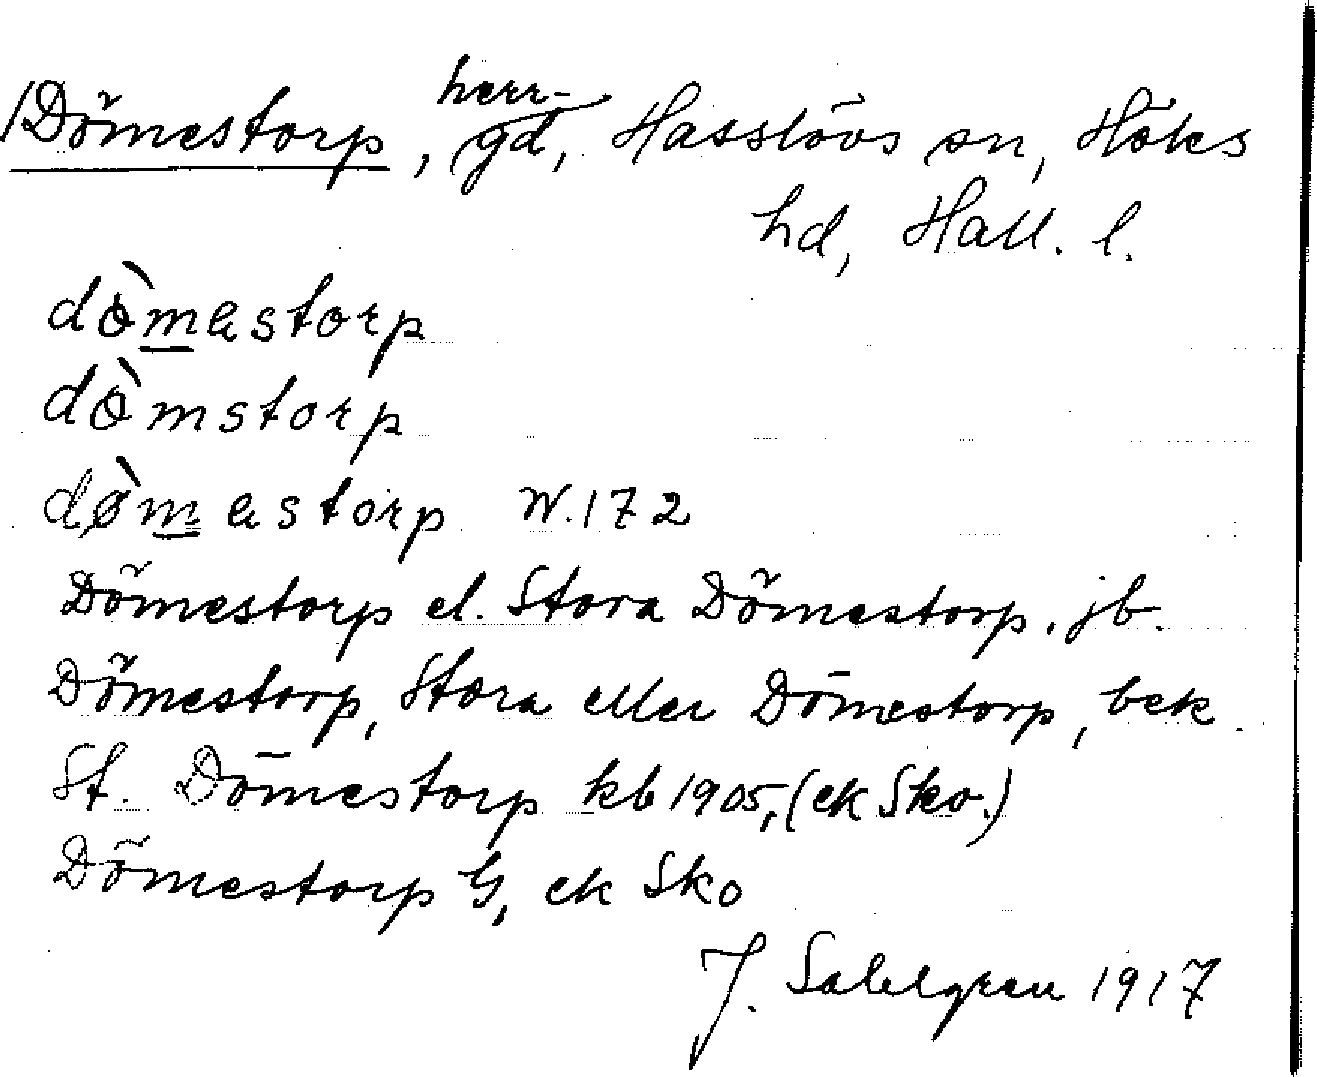 /Dömestorp, herr-gd, Hasslövs sn, Höks
hd, Hall. l.
dò̱mastorp
dòmstorp
dø̀mastorp W.172
Dömestorp el. Stora Dömestorp. jb.
Dömestorp, Stora eller Dömestorp, bek.
St. Dömestorp kb 1905, (ek Sko.)
Dömestorp G, ek Sko
J. Sahlgren 1917